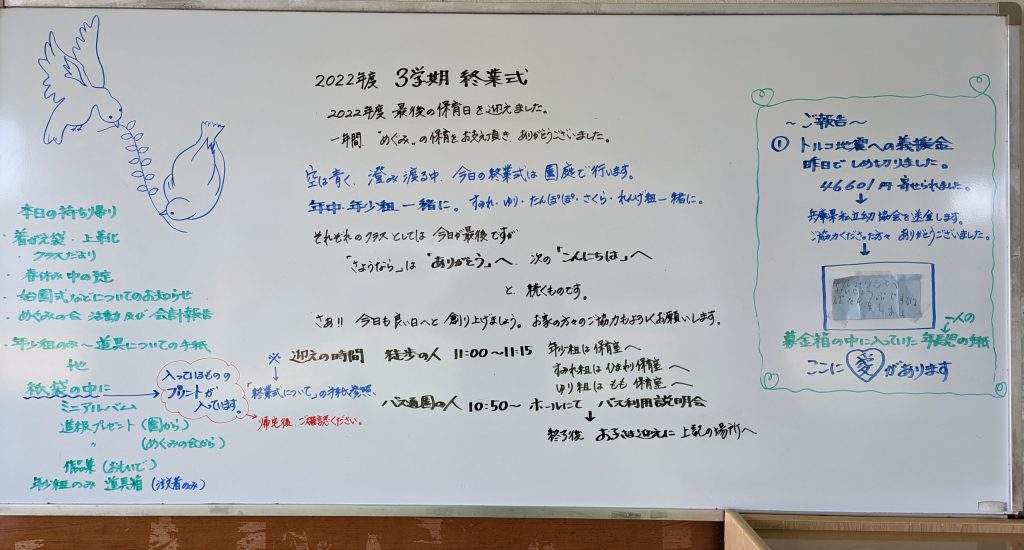 2022年度 3学期 終業式
2022年度 最後の保育日を迎えました。
一年間、"めぐみ"の保育をお支え頂き、ありがとうございました。
空は青く、澄み渡る中、今日の終業式は園庭で行います。
年中・年少組 一緒に。すみれ・ゆり・たんぽぽ・さくら・れんげ組一緒に。
それぞれのクラスとしては今日が最後ですが
「さようなら」は"ありがとう"へ、次の「こんにちは」へ
と、続くものです。
さぁ!! 今日も良い日へと創り上げましょう。お家の方々のご協力もよろしくお願いします。
※ 迎えの時間 徒歩の人 11:00〜11:15
年少組は保育室へ
すみれ組はひまわり保育室へ
ゆり組はもも保育室へ
「終業式について」の手紙参照、
バス通園の人 10:50〜 ホールにて バス利用説明会
↓
終了後 お子さま迎えに上記の場所へ
本日の持ち帰り
・着がえ袋・上靴
・クラスだより
・春休み中の予定
・始園式などについてのお知らせ
・めぐみの会 活動及び会計報告
・年少組のみ〜道具についての手紙
他
紙袋の中に
入っているものの
プリントが
入っています。
→帰宅後、ご確認ください。
ミニアルバム
進級プレゼント(園から)
〃 (めぐみの会から)
作品集(おもいで)
年少組のみ 道具箱(注文者のみ)
〜ご報告〜
① トルコ地震への義援金
昨日でしめ切りました。
46601円 寄せられました。
↓
兵庫県私立幼協会を送金します。
ご協力くださった方々 ありがとうございました。
↓
一人の
募金箱の中に入っていた 年長児の手紙
ここに愛があります